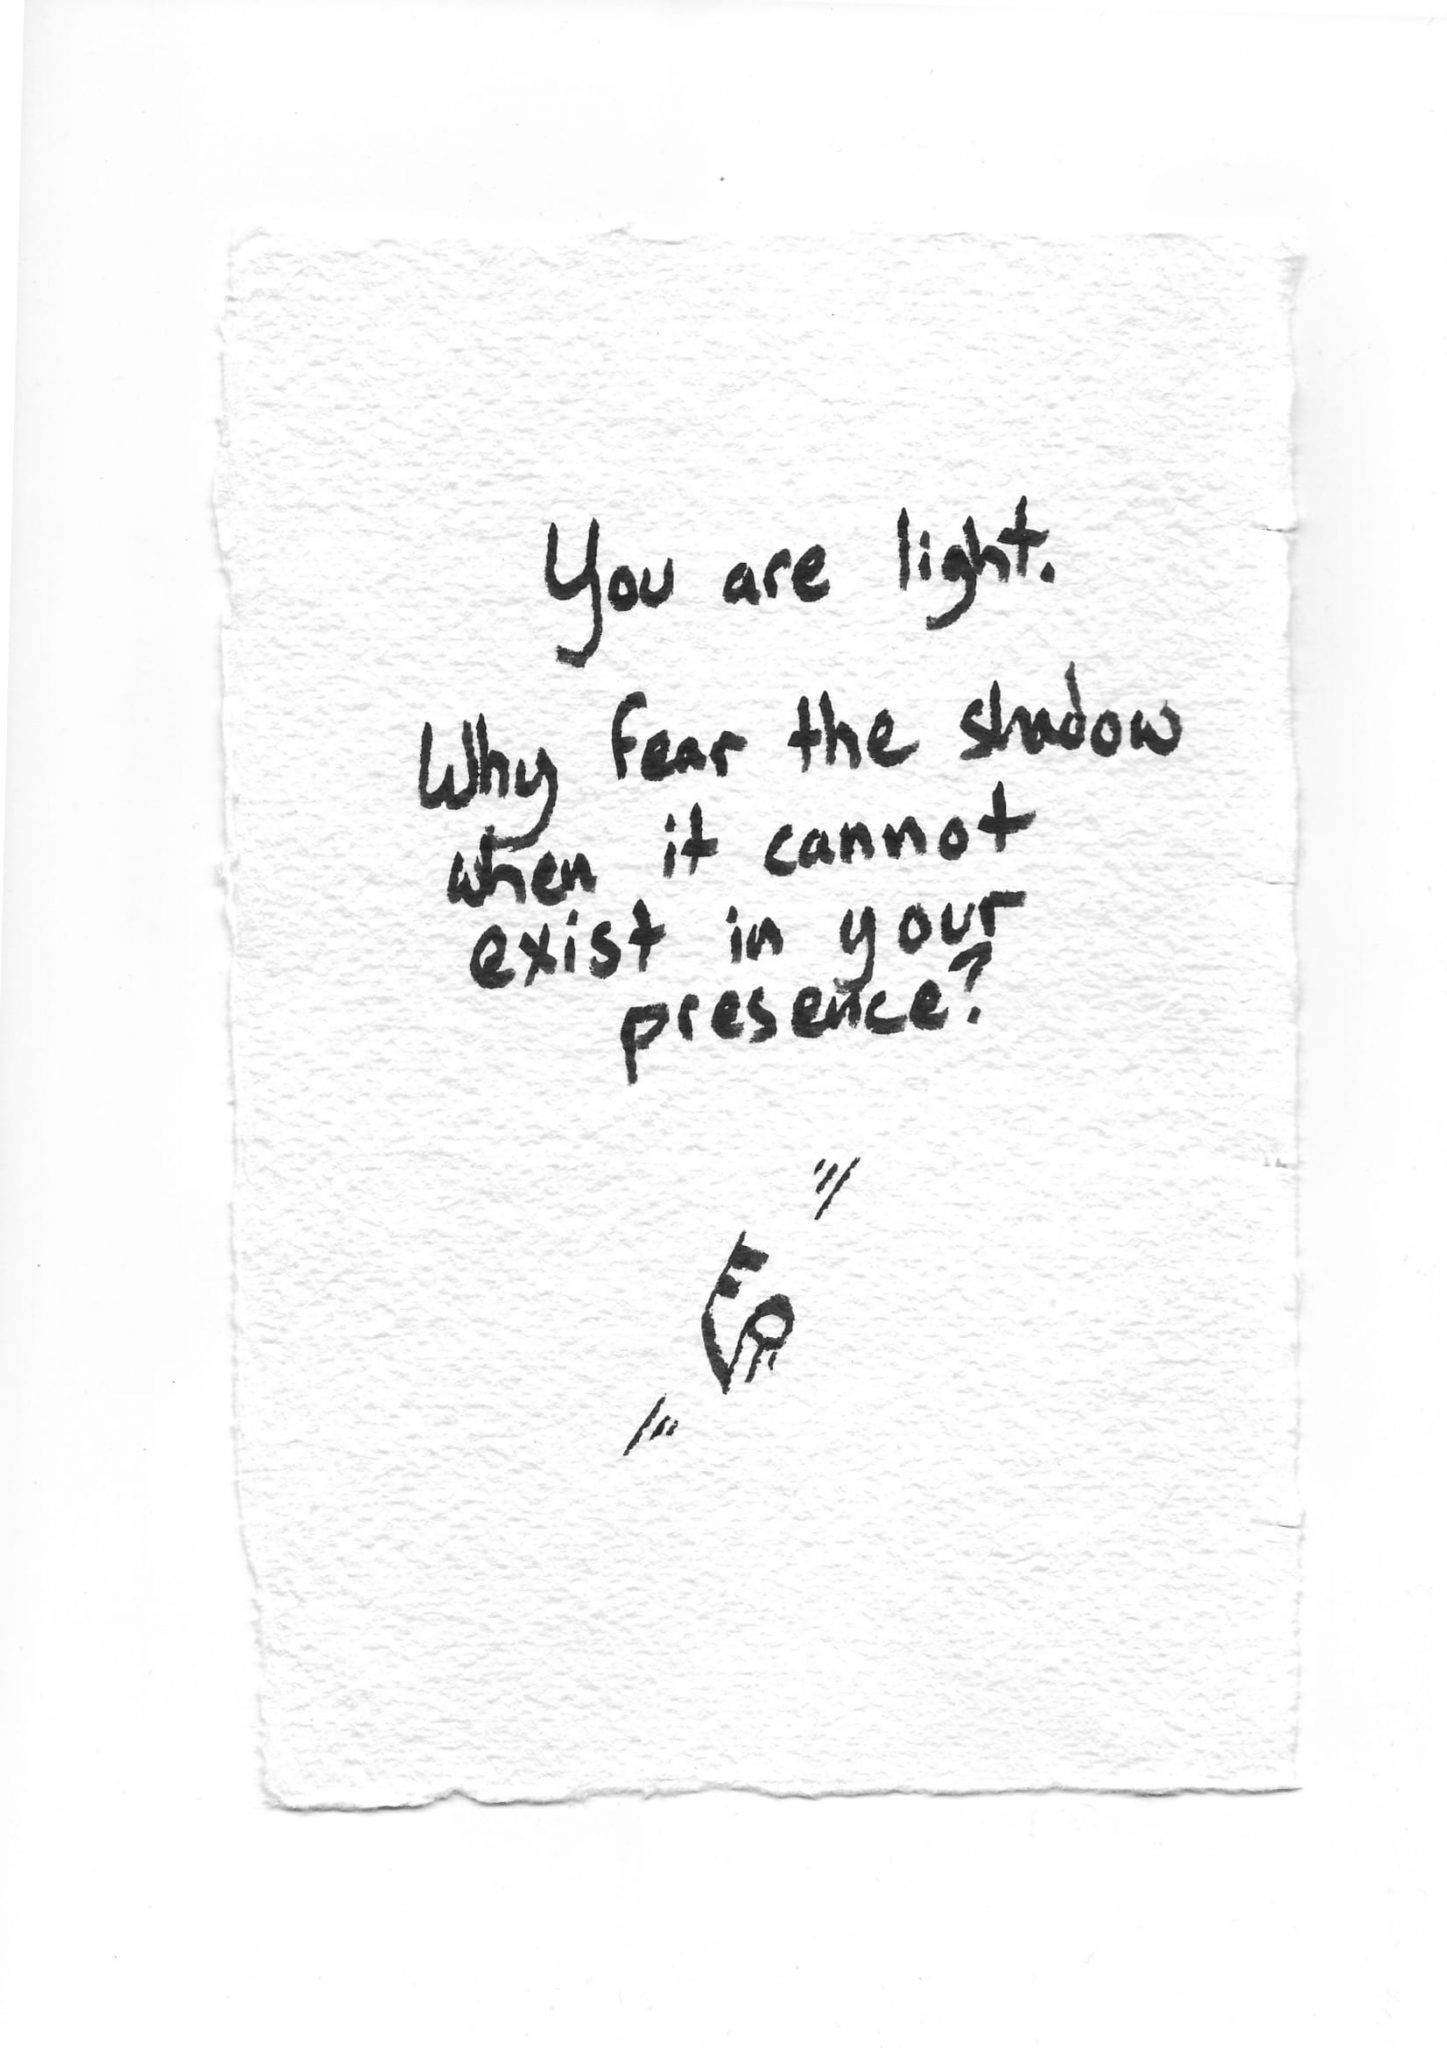 You are light.
Why fear the shadow
when it cannot
exist in your
presence?